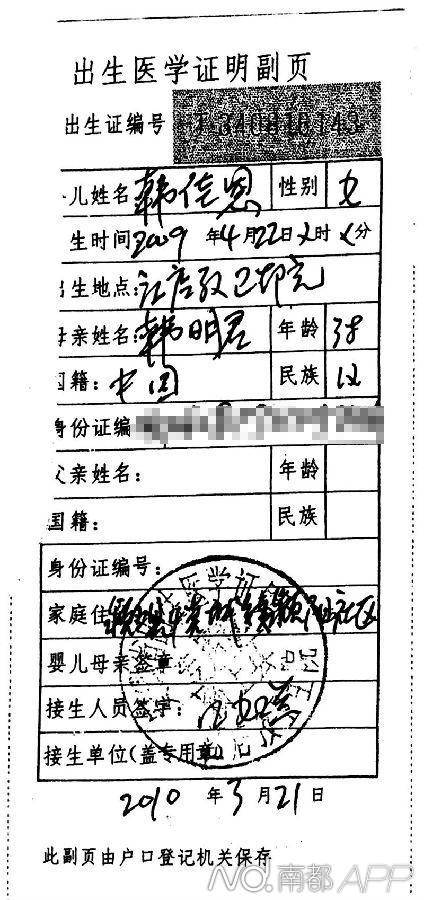 出生医学证明副页
出生证编号 J 340816143
儿姓名 韩佳恩 性别 女
生时间 2009 年 4 月 22 日 时 分
出生地点:
母亲姓名: 韩明君 年龄
国籍: 中国 民族 汉
身份证编
父亲姓名: 年龄
国籍: 民族
身份证编号:
家庭住 社区
婴儿母亲签章
接生人员签字:
接生单位(盖专用章)
2010 年 3 月 21 日
此副页由户口登记机关保存
NO.南都APP